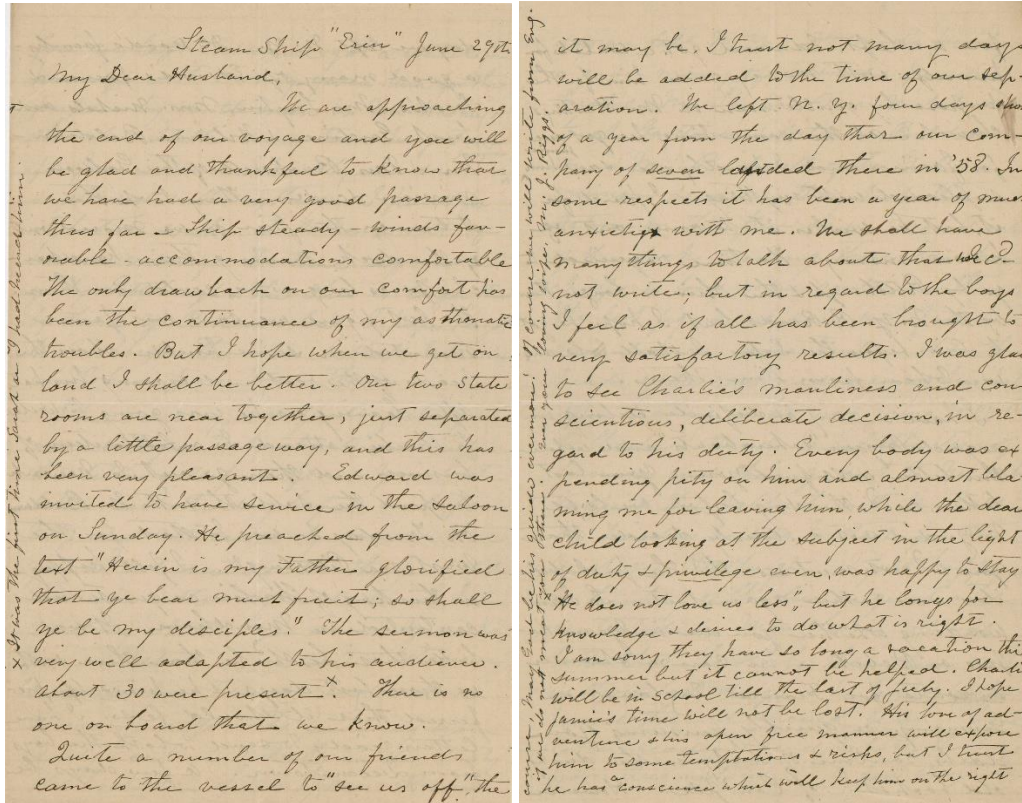 Steam Ship "Erin" June 29th
My Dear Husband,
We are approaching
the end of our voyage and you will
be glad and thankful to know that
we have had a very good passage
thus far - Ship steady - winds fav-
orable - accommodations comfortable
The only drawback on our comfort has
been the continuance of my asthmatic
troubles. But I hope when we get on
land I shall be better. Our two state
rooms are near together, just separated
by a little passage way, and this has
been very pleasant. Edward was
invited to have service in the saloon
on Sunday. He preached from the
text "Herein is my Father glorified
that ye bear much fruit; so shall
ye be my disciples." The sermon was
very well adapted to his audience.
about 30 were present x. There is no
one on board that we know.
Quite a number of our friends
came to the vessel to "see us off", the
x It was the first time Sarah or I had heard him.
it may be. I trust not many days
will be added to the time of our sep-
aration. We left N. Y. four days
of a year from the day that our com-
pany of seven landed there in '58. In
some respects it has been a year of much
anxieties with me. We shall have
many things to talk about that we c
not write, but in regard to the boys
I feel as if all has been brought to
very satisfactory results. I was glad
to see Charlie's manliness and con
scientious, deliberate decision, in re-
gard to his duty. Every body was ex
pending pity on him and almost bla
ming me for leaving him, while the dear
child looking at the subject in the light
of duty & privilege even, was happy to stay
"He does not love us less", but he longs for
knowledge & desires to do what is right.
I am sorry they have so long a vacation this
summer but it cannot be helped. Charlie
will be in school till the last of July. I hope
Jamie's time will not be lost. His love of ad-
venture & his open free manner will expose
him to some temptations & risks, but I trust
he has a conscience which will keep him on the right
course, May God be his guide evermore! Of course we will write from Eng.
if we do not meet you there. Ever your loving wife. M. J. Riggs.